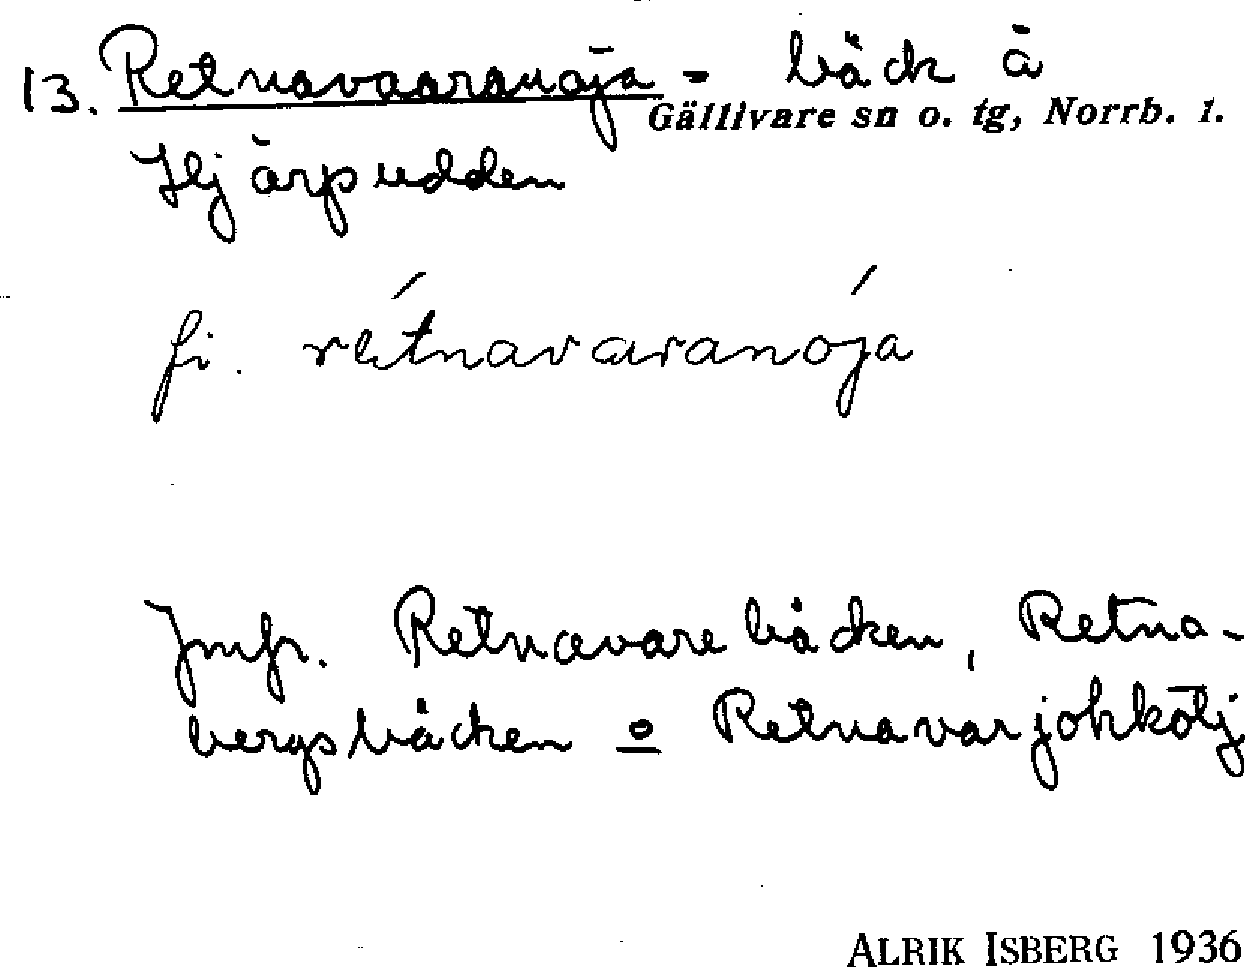 13. Retnavaaranoja - bäck å
Gällivare sn o. tg, Norrb. l.
Hjärpudden
fi. rétnavaranója
Jmfr. Retnavarebäcken, Retna-
bergsbäcken o Retnavarjohkölj
ALRIK ISBERG 1936